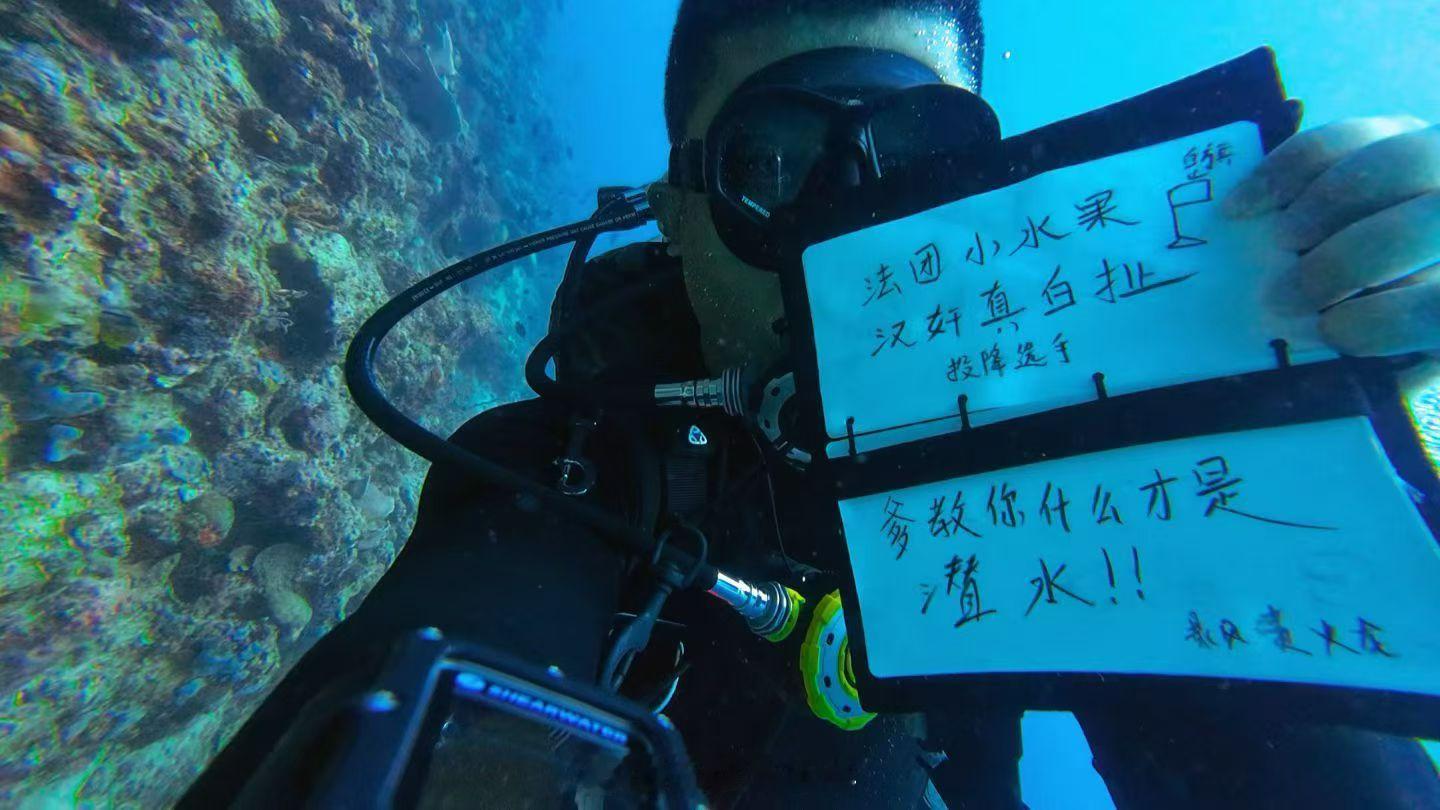 白旗
法团小水果
汉奸真白扯
投降选手
爹教你什么才是
潜水!!
TEMPERED
SHEARWATER